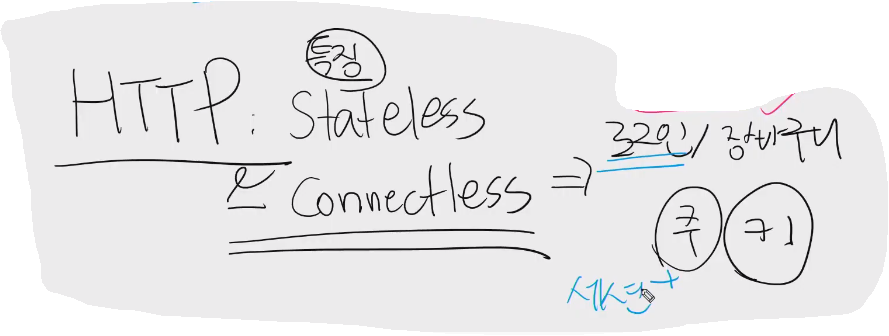 특징
HTTP : Stateless
Connectless ⇒ 로그인/ 장바구니
쿠 키
세션